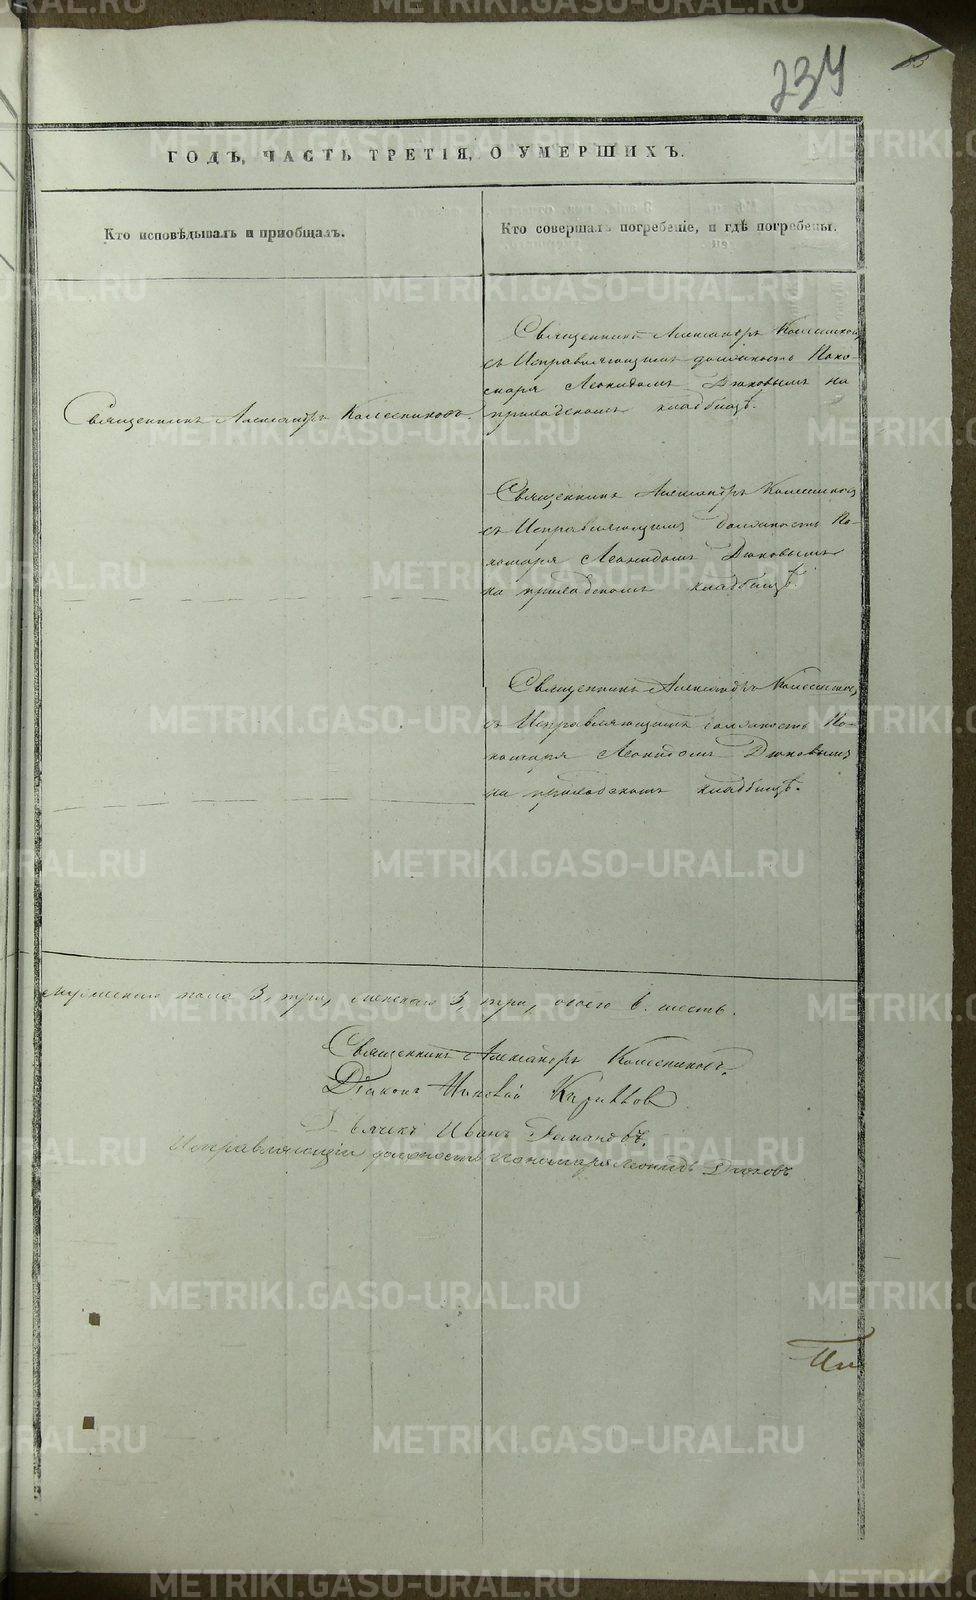 234
ГОДЪ, ЧАСТЬ ТРЕТІЯ, О УМЕРШИХЪ.
Кто исповѣдывалъ и пріобщалъ.
Кто совершалъ погребеніе, и гдѣ погребены.
Священникъ Александръ Колесников
съ Исправляющимъ должность Поно-
маря Леонидомъ Дюковымъ на
приходскомъ кладбищѣ.
Священникъ Александръ Колесниковъ.
Священникъ Александръ Колесников
съ Исправляющимъ должность По-
номаря Леонидомъ Дюковымъ
на приходскомъ кладбищѣ.
Священникъ Александръ Колесников
съ Исправляющимъ должность По-
номаря Леонидомъ Дюковымъ
на приходскомъ кладбищѣ.
Мужеска пола 3, три, женска 3, три, обоего 6. шесть.
Священникъ Александръ Колесниковъ.
Діаконъ Николай
Дьячекъ Иванъ
Исправляющій должность Пономаря Леонидъ Дюковъ
METRIKI.GASO-URAL.RU